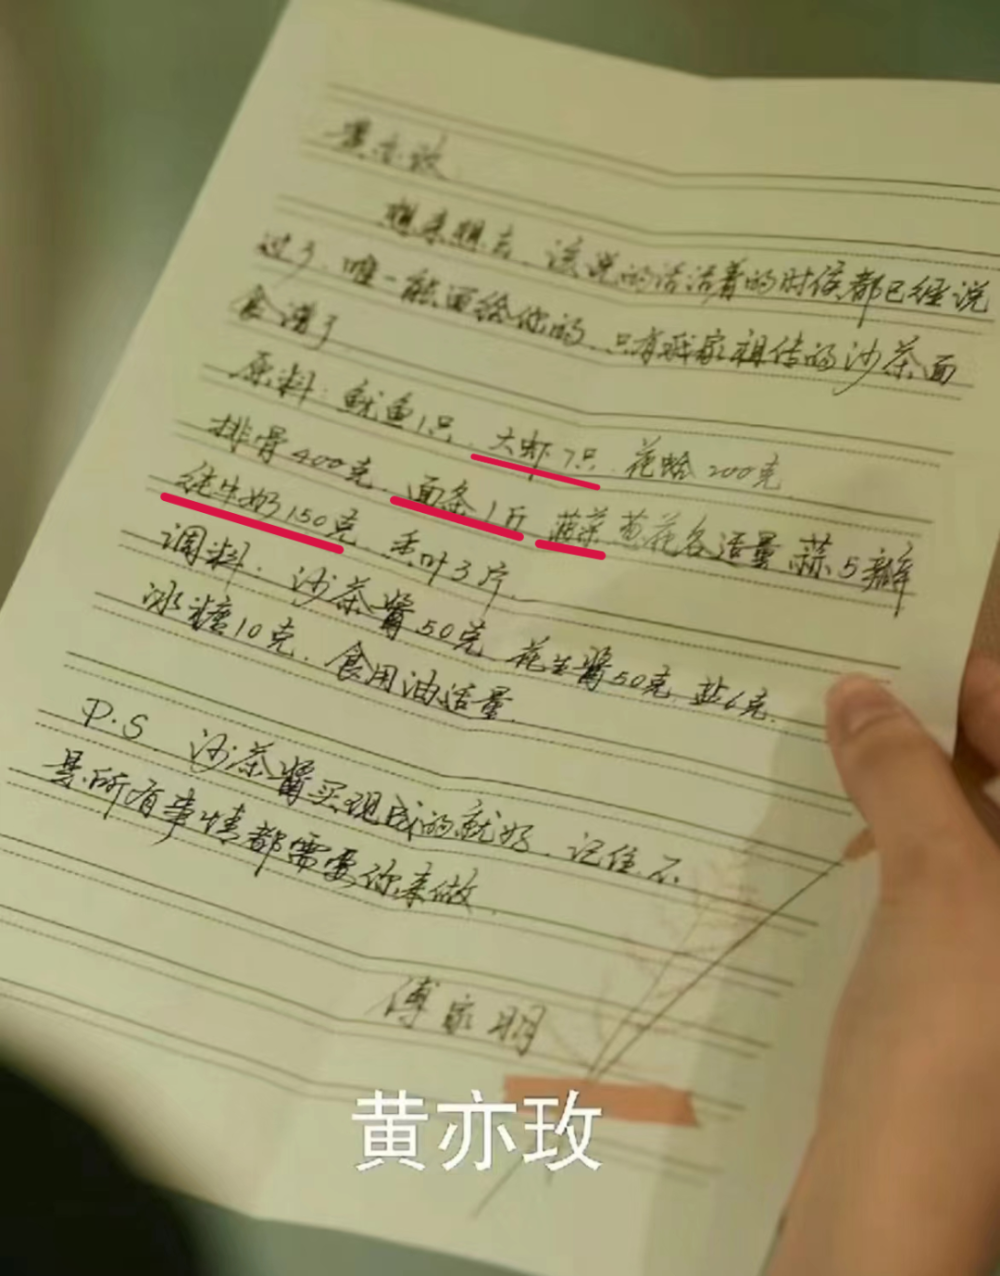 黄亦玫
想来想去，该说的话活着的时候都已经说
过了，唯一能留给你的，只有我家祖传的沙茶面
食谱了
原料：鱿鱼1只、大虾7只、花蛤200克、
排骨400克、面条1斤、菠菜葱花各适量、蒜5瓣
纯牛奶150克、香叶3片.
调料：沙茶酱50克、花生酱50克、盐6克、
冰糖10克、食用油适量.
P.S. 沙茶酱买现成的就好，记住不
是所有事情都需要你来做.
傅家明
黄亦玫